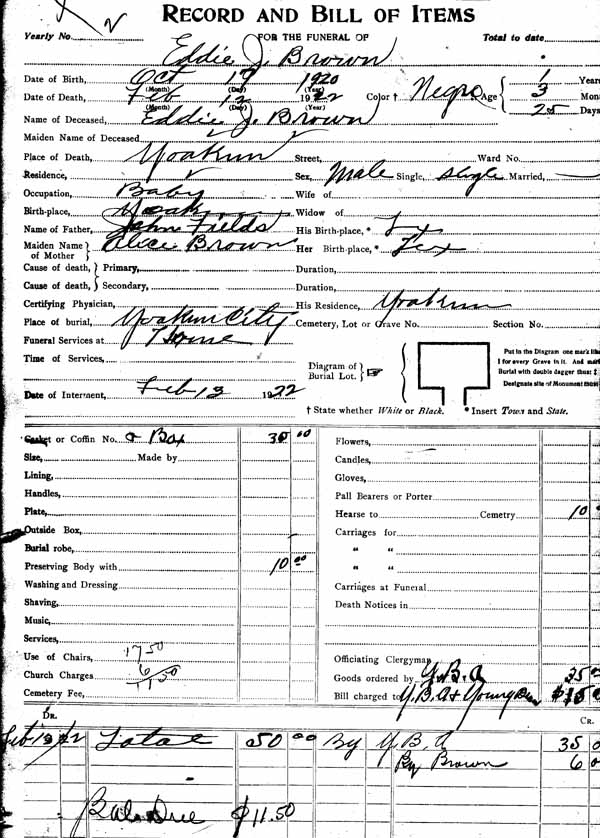 RECORD AND BILL OF ITEMS
Yearly No. FOR THE FUNERAL OF Total to date
Eddie J. Brown
Date of Birth, Oct 17 1920 1 Years
(Month) (Day) (Year)
Date of Death, Feb 12 1922 Color † Negro Age 3 Mon
(Month) (Day) (Year) 25 Days
Name of Deceased, Eddie J. Brown
Maiden Name of Deceased,
Place of Death, Yoakum Street, Ward No.
Residence, Sex, Male Single, single Married,
Occupation, Baby Wife of
Birth-place, Yoak Widow of
Name of Father, John Fields His Birth-place, * Tx
Maiden Name of Mother Alice Brown Her Birth-place, * Tex
Cause of death, Primary, Duration,
Cause of death, Secondary, Duration,
Certifying Physician, His Residence, Yoakum
Place of burial, Yoakum City Cemetery, Lot or Grave No. Section No.
Funeral Services at Home
Time of Services, Diagram of Burial Lot. ☞
Put in the Diagram one mark like
I for every Grave in it. And mark
Burial with double dagger thus: ‡
Designate site of Monument thus
Date of Interment, Feb 13 1922
† State whether White or Black. * Insert Town and State.
Casket or Coffin No. & Box 35 00 Flowers,
Size, Made by Candles,
Lining, Gloves,
Handles, Pall Bearers or Porter
Plate, Hearse to Cemetry 10
Outside Box, Carriages for
Burial robe, " "
Preserving Body with 10 00 " "
Washing and Dressing Carriages at Funeral
Shaving, Death Notices in
Music,
Services,
Use of Chairs, 17 50 Officiating Clergyman
Church Charges 6 Goods ordered by Y. B. A 35
11 50
Cemetery Fee, Bill charged to Y. B. A &
DR. CR.
Feb 13 22 Total 50 00 By Y B A 35 0
By Brown 6 0
Bal Due $11.50